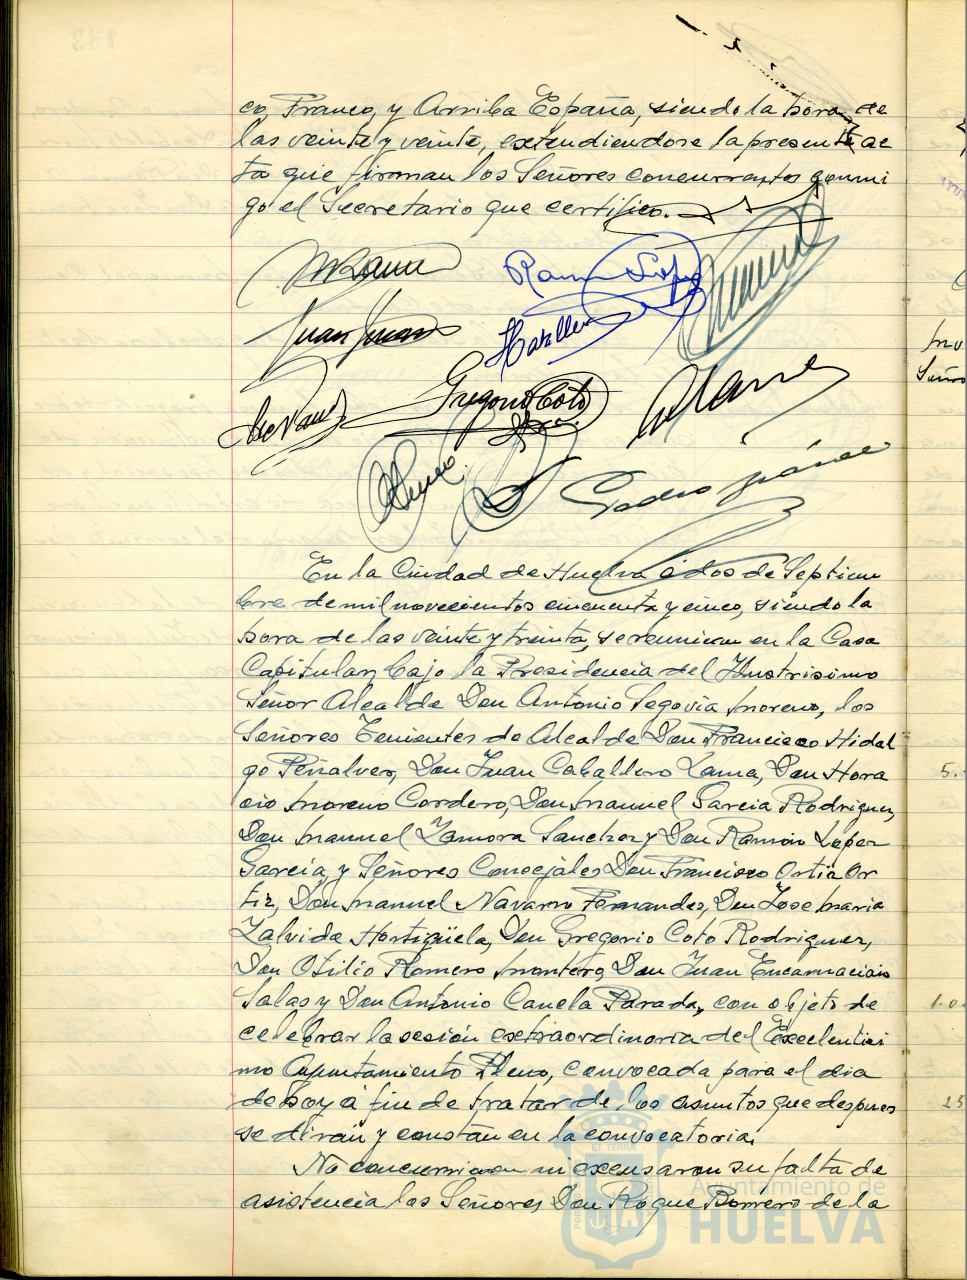 co, Franco, y Arriba España, siendo la hora de
las veinte y veinte, extendiendose la presente ac
ta que firman los Señores concurrentes conmi
go el Secretario que certifico.
Ramon Lopez
Gregorio Coto
En la Ciudad de Huelva á dos de Septiem
bre de mil novecientos cincuenta y cinco, siendo la
hora de las veinte y treinta, se reunieron en la Casa
Capitular, bajo la Presidencia del Ilustrisimo
Señor Alcalde Don Antonio Segovia Moreno, los
Señores Tenientes de Alcalde Don Francisco Hidal
go Peñalver, Don Juan Caballero Lama, Don Hora
cio Moreno Cordero, Don Manuel Garcia Rodriguez,
Don Manuel Zamora Sanchez y Don Ramón Lopez
García, y Señores Concejales Don Francisco Ortiz Or
tiz, Don Manuel Navarro Fernandez, Don Jose Maria
Zalvide Hortigüela, Don Gregorio Coto Rodriguez,
Don Otilio Romero Montero, Don Juan Encarnación
Salas y Don Antonio Canela Parada, con objeto de
celebrar la sesión extraordinaria del Excelentisi
mo Ayuntamiento Pleno, convocada para el dia
de hoy á fin de tratar de los asuntos que despues
se dirán y constan en la convocatoria.
No concurrieron ni excusaron su falta de
asistencia los Señores Don Roque Borrero de la
Ayuntamiento de
HUELVA